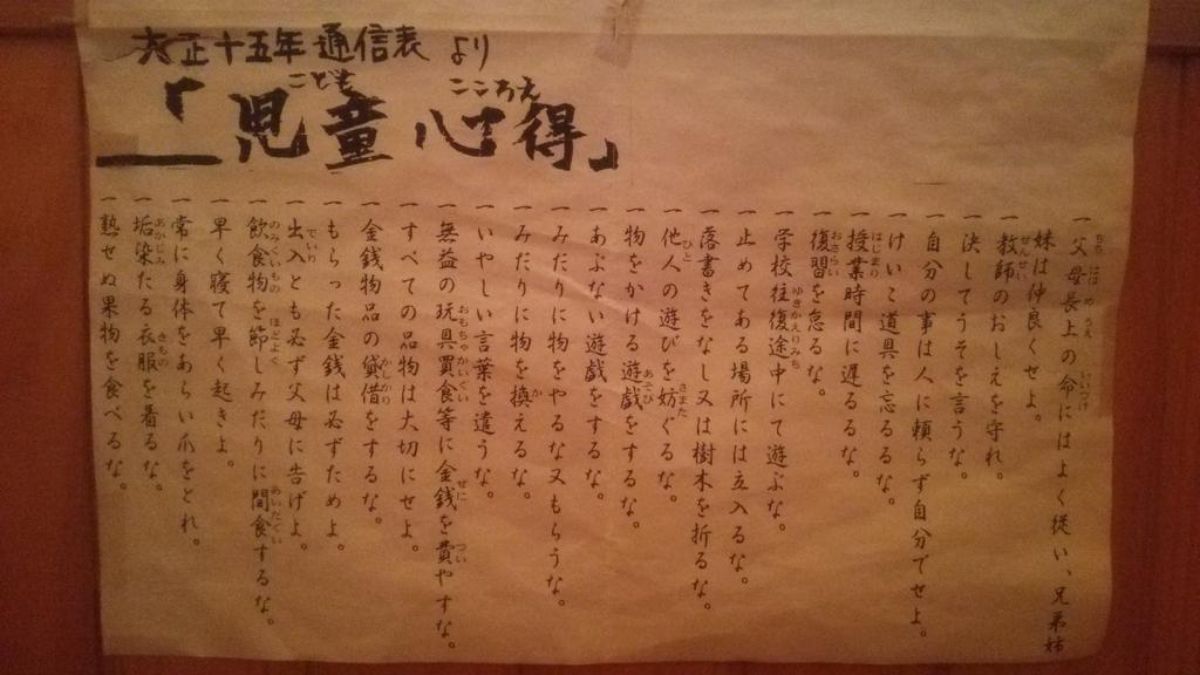 大正十五年 通信表 より
「児童心得」
一 父母長上の命にはよく従い、兄弟姉
妹は仲良くせよ。
一 教師のおしえを守れ。
一 決してうそを言うな。
一 自分の事は人に頼らず自分でせよ。
一 けいこ道具を忘るな。
一 授業時間に遅るな。
一 復習を怠るな。
一 学校往復途中にて遊ぶな。
一 止めてある場所には立入るな。
一 落書きをなし又は樹木を折るな。
一 他人の遊びを妨ぐるな。
一 物をかける遊戯をするな。
一 あぶない遊戯をするな。
一 みだりに物をやるな又もらうな。
一 みだりに物を換えるな。
一 いやしい言葉を遣うな。
一 無益の玩具買食等に金銭を費やすな。
一 すべての品物は大切にせよ。
一 金銭物品の貸借をするな。
一 もらった金銭は必ずためよ。
一 出入とも必ず父母に告げよ。
一 飲食物を節しみだりに間食するな。
一 早く寝て早く起きよ。
一 常に身体をあらい爪をとれ。
一 垢染たる衣服を着るな。
一 熟せぬ果物を食べるな。